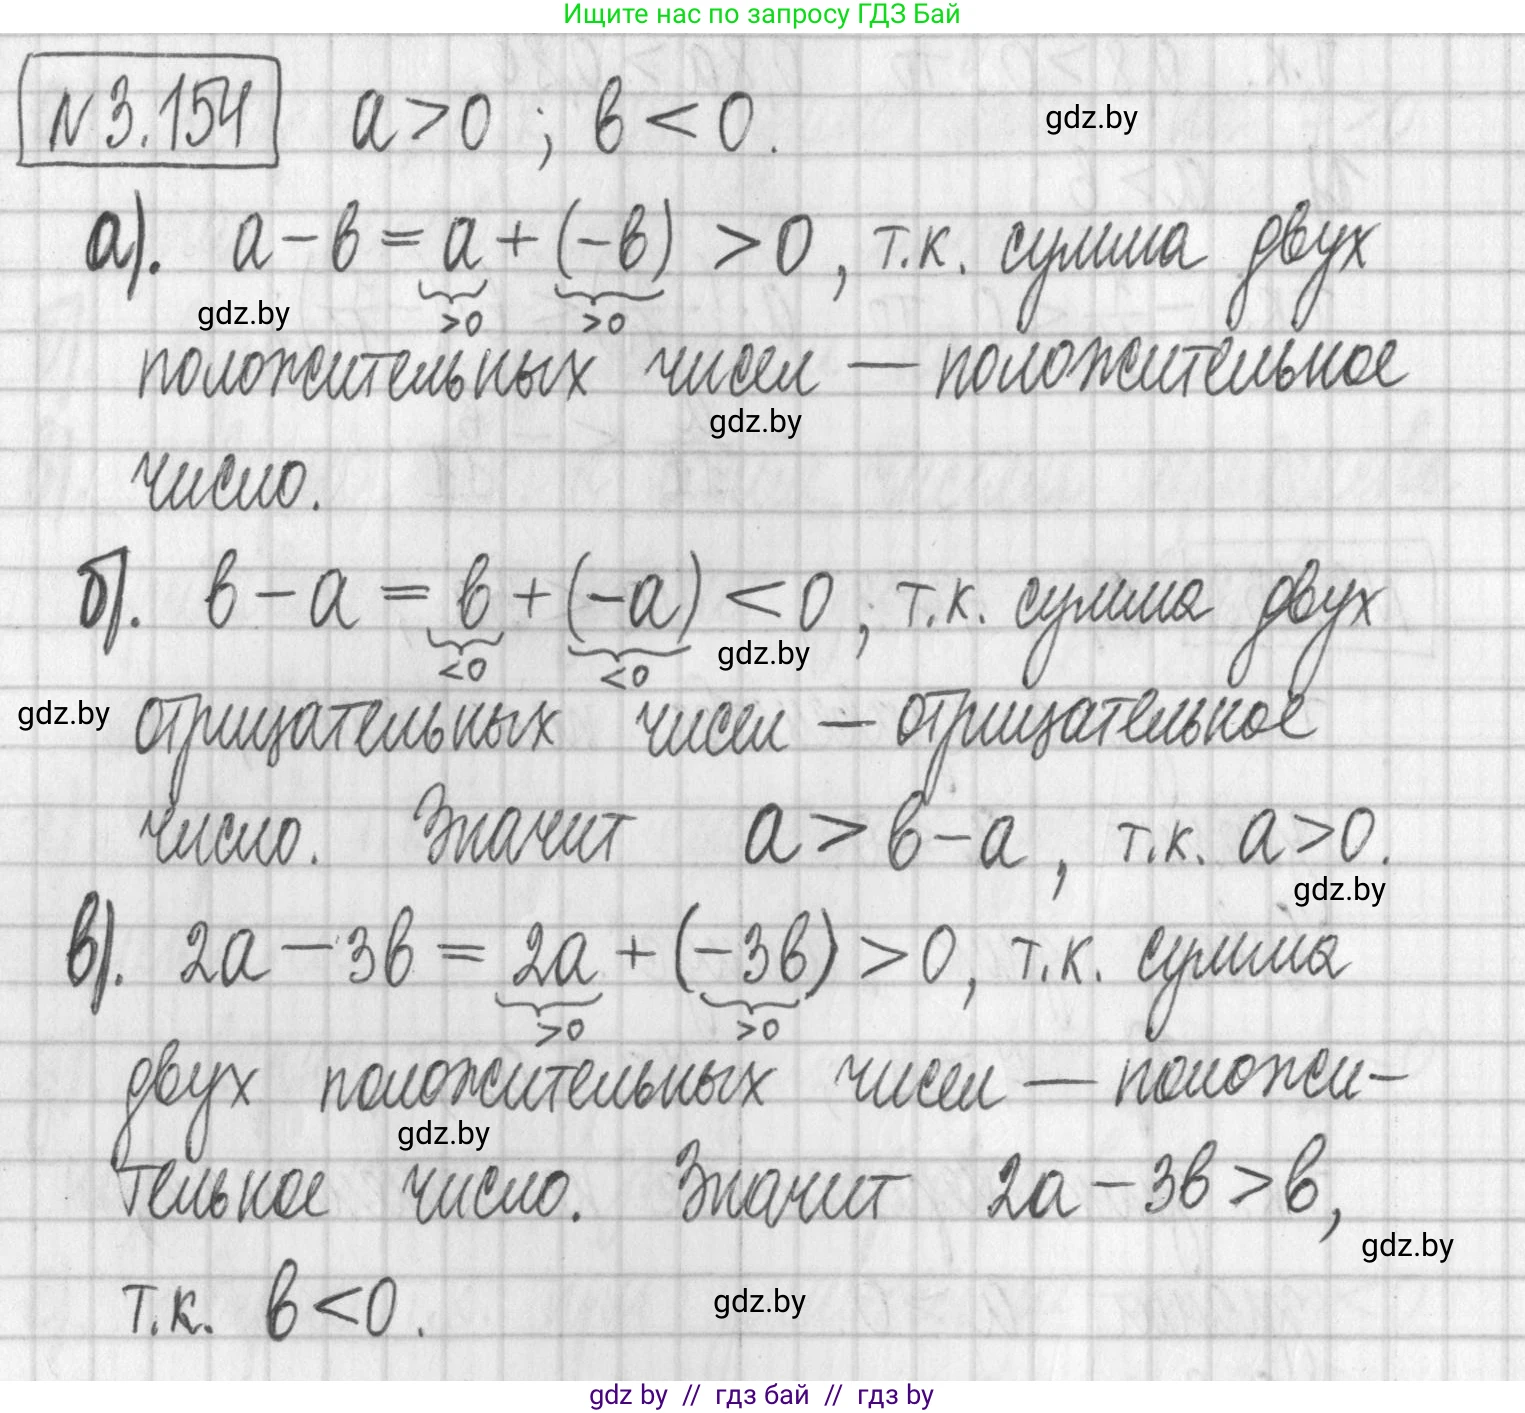 Ищите нас по запросу ГДЗ Бай
N 3.154 a>0 ; b<0. gdz.by
а). a-b = a + (-b) >0, т.к. сумма двух
gdz.by >0 >0
положительных чисел — положительное
gdz.by
число.
б). b-a = b + (-a) <0, т.к. сумма двух
<0 <0 gdz.by
gdz.by отрицательных чисел — отрицательное
число. Значит a > b-a, т.к. a>0.
gdz.by
в). 2a - 3b = 2a + (-3b) >0, т.к. сумма
>0 >0
двух положительных чисел — положи-
gdz.by
тельное число. Значит 2a - 3b > b,
gdz.by
т.к. b<0. gdz.by
gdz by // гдз бай // гдз by